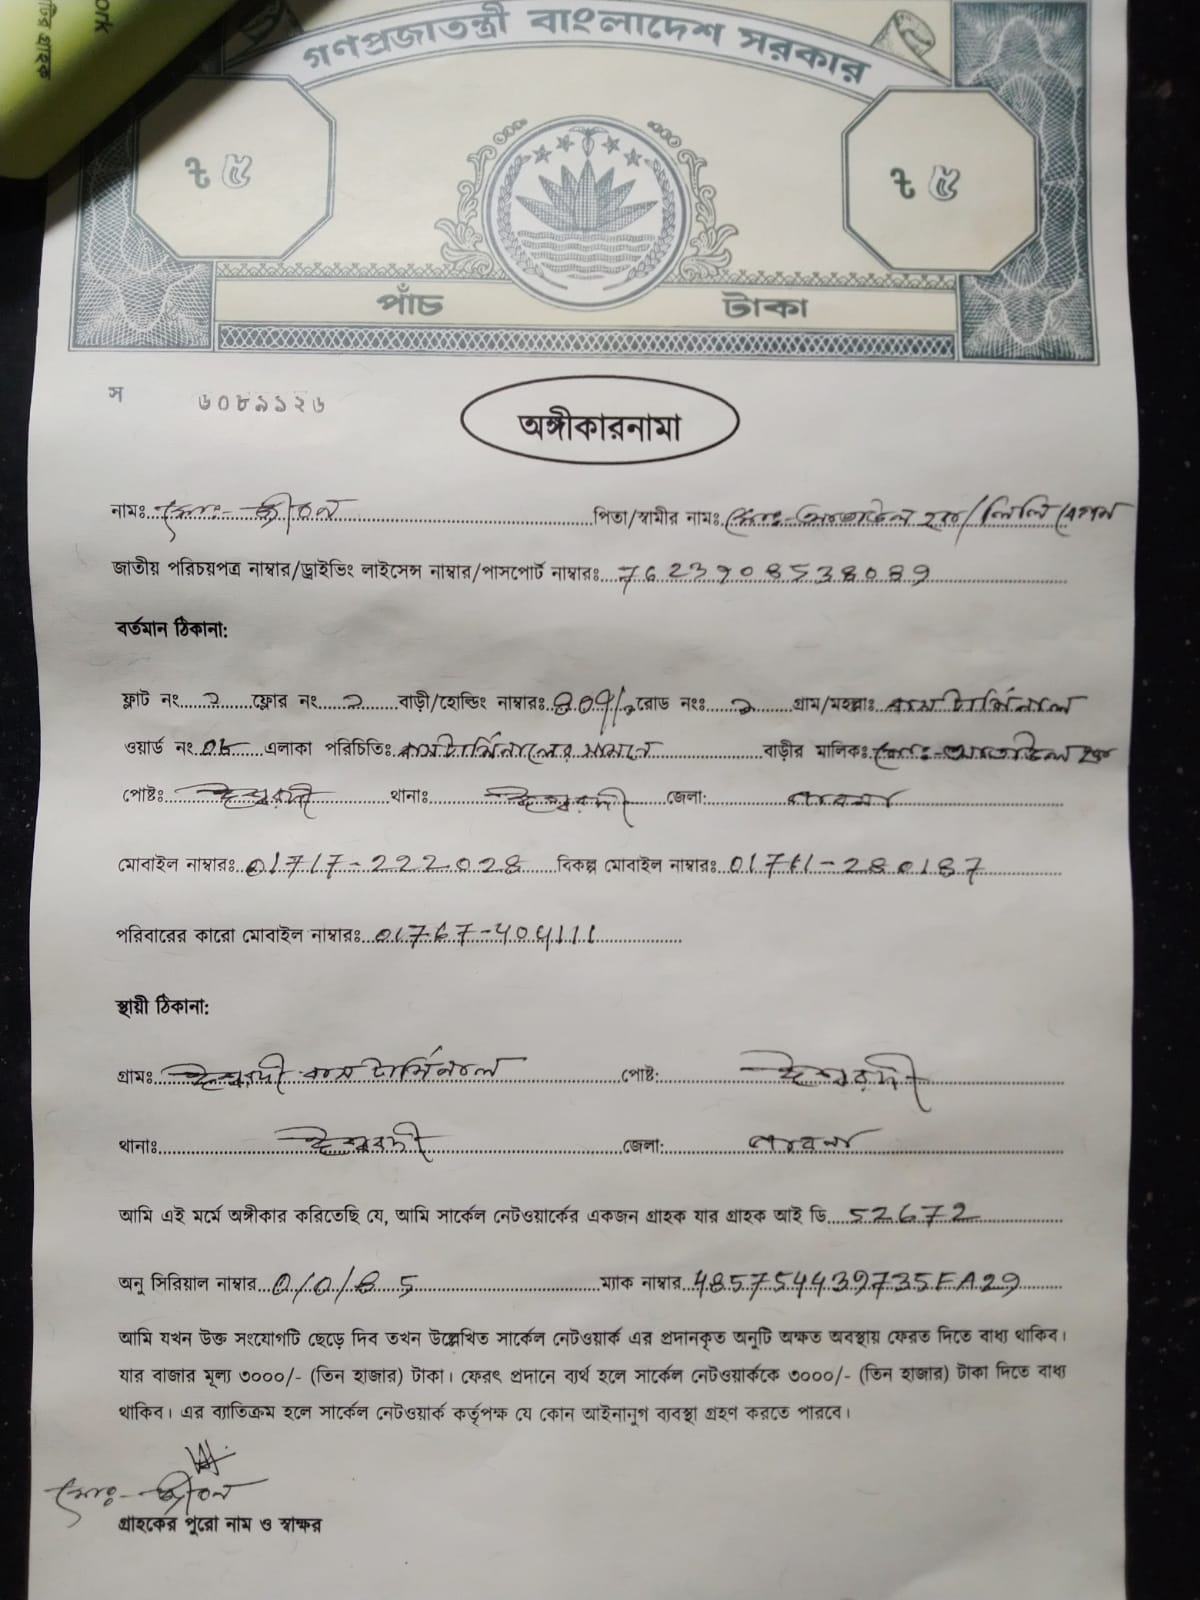 ork
টির গ্রাহক
গণপ্রজাতন্ত্রী বাংলাদেশ সরকার
ট ৫ ট ৫
পাঁচ টাকা
স ৬০৮৯১২৬
অঙ্গীকারনামা
নামঃ মোঃ- জীবন পিতা/স্বামীর নামঃ মোঃ- হক/লিলি বেগম
জাতীয় পরিচয়পত্র নাম্বার/ড্রাইভিং লাইসেন্স নাম্বার/পাসপোর্ট নাম্বারঃ
বর্তমান ঠিকানা:
ফ্লাট নং ২ ফ্লোর নং ২ বাড়ী/হোল্ডিং নাম্বারঃ রোড নংঃ গ্রাম/মহল্লাঃ বাস টার্মিনাল
ওয়ার্ড নং ০৮ এলাকা পরিচিতিঃ বাস টার্মিনালের সামনে বাড়ীর মালিকঃ মোঃ- হক
পোষ্টঃ ঈশ্বরদী থানাঃ ঈশ্বরদী জেলা: পাবনা
মোবাইল নাম্বারঃ 01717-222028 বিকল্প মোবাইল নাম্বারঃ
পরিবারের কারো মোবাইল নাম্বারঃ
স্থায়ী ঠিকানা:
গ্রামঃ ঈশ্বরদী বাস টার্মিনাল পোষ্ট: ঈশ্বরদী
থানাঃ ঈশ্বরদী জেলা: পাবনা
আমি এই মর্মে অঙ্গীকার করিতেছি যে, আমি সার্কেল নেটওয়ার্কের একজন গ্রাহক যার গ্রাহক আই ডি 52672
অনু সিরিয়াল নাম্বার 0/0/8 5 ম্যাক নাম্বার 485754439735FA29
আমি যখন উক্ত সংযোগটি ছেড়ে দিব তখন উল্লেখিত সার্কেল নেটওয়ার্ক এর প্রদানকৃত অনুটি অক্ষত অবস্থায় ফেরত দিতে বাধ্য থাকিব।
যার বাজার মূল্য ৩০০০/- (তিন হাজার) টাকা। ফেরৎ প্রদানে ব্যর্থ হলে সার্কেল নেটওয়ার্ককে ৩০০০/- (তিন হাজার) টাকা দিতে বাধ্য
থাকিব। এর ব্যাতিক্রম হলে সার্কেল নেটওয়ার্ক কর্তৃপক্ষ যে কোন আইনানুগ ব্যবস্থা গ্রহণ করতে পারবে।
মোঃ- জীবন
গ্রাহকের পুরো নাম ও স্বাক্ষর